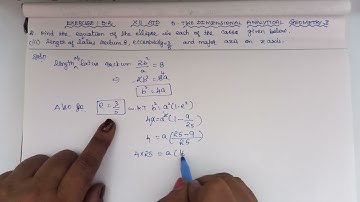 EXERCISE 5.2 XII STD 5. TWO DIMENSIONAL ANALYTICAL GEOMETRY-II
2. Find the equation of the ellipse in each of the cases given below.
(iv) length of latus rectum 8, eccentricity = 3/5 and major axis on x axis.
Soln
Length of latus rectum 2b²/a = 8
⇒ 2b² = 8a
b² = 4a
Also e = 3/5 b² = a²(1-e²)
4a = a²(1 - 9/25)
4 = a(25-9/25)
4×25 = a(